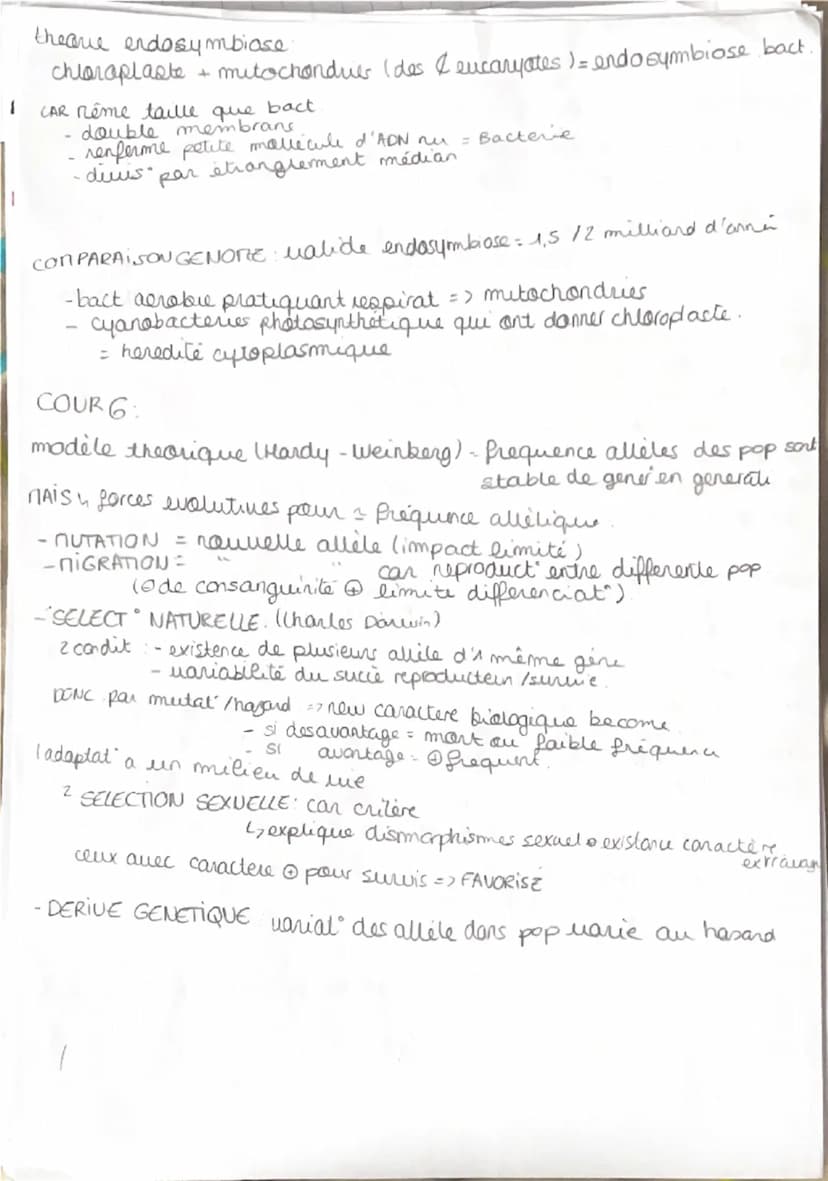 theorie endosymbiose
chloroplaste + mitochondries (des ₵ eucaryotes) = endosymbiose bact.
CAR même taille que bact
- double membrans
- renferme petite mollécule d'ADN nu = Bacterie
- divis° par étranglement médian
COMPARAISON GENOME : valide endosymbiose = 1,5 / 2 milliard d'anné
- bact aerobie pratiquant respirat => mitochondries
- cyanobacteries photosynthétique qui ont donner chloroplaste.
= heredité cytoplasmique
COUR 6 :
modèle theorique (Hardy - Weinberg) - frequence allèles des pop sont
stable de gener° en generat
MAIS 4 forces evolutives pour ≃ fréquence allélique.
- MUTATION = nouvelle allèle (impact limité)
- MIGRATION = " " car reproduct° entre differente pop
(⊖ de consanguinité ⊕ limite differenciat°)
- SELECT° NATURELLE. (Charles Darwin)
2 condit : - existence de plusieurs allèle d'1 même gène
- variabilité du succè reproducteur / survie.
DONC par mutat° / hasard => new caractere biologique become
- si desavantage = mort ou faible fréquence
- si avantage = ⊕ frequent.
1 adaptat° a un milieu de vie
2 SELECTION SEXUELLE : car critère
↳ explique dismorphismes sexuel o existance caractère
extravag
ceux avec caractere ⊕ pour survis => FAVORISE
- DERIVE GENETIQUE variat° des allèle dans pop varie au hasard